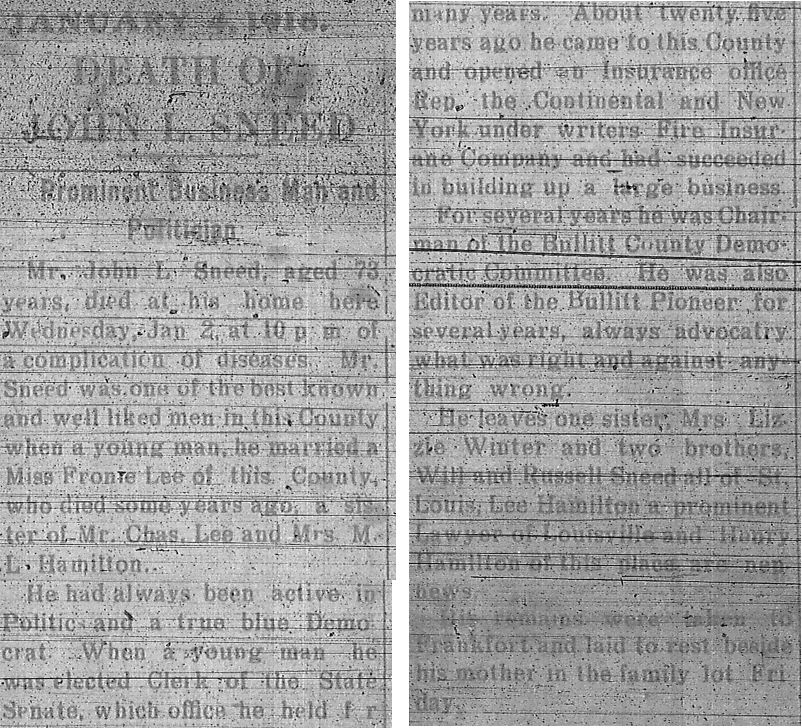 JANUARY 4, 1918.
DEATH OF
JOHN L. SNEED
Prominent Business Man and
Politician
Mr. John L Sneed, aged 73
years, died at his home here
Wednesday, Jan 2, at 10 p m of
a complication of diseases. Mr.
Sneed was one of the best known
and well liked men in this County
when a young man, he married a
Miss Fronie Lee of this County,
who died some years ago, a sis-
ter of Mr. Chas. Lee and Mrs. M.
L. Hamilton.
He had always been active in
Politics and a true blue Demo
crat When a young man he
was elected Clerk of the State
Senate, which office he held f r
many years. About twenty five
years ago he came to this County
and opened an Insurance office
Rep. the Continental and New
York under writers Fire Insur-
ane Company and had succeeded
in building up a large business
For several years he was Chair-
man of the Bullitt County Demo-
cratic Committee. He was also
Editor of the Bullitt Pioneer for
several years, always advocatry
what was right and against any-
thing wrong.
He leaves one sister, Mrs Liz-
zie Winter and two brothers,
Will and Russell Sneed all of St.
Louis, Lee Hamilton a prominent
Lawyer of Louisville and Henry
Hamilton of this place are nep
hews
His remains were taken to
Frankfort and laid to rest beside
his mother in the family lot Fri
day.